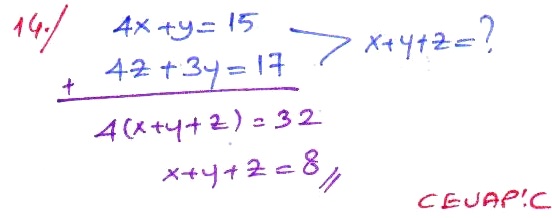 14./ 4x+y=15
4z+3y=17 x+y+z=?
+
4(x+y+z)=32
x+y+z=8//
CEVAP:C